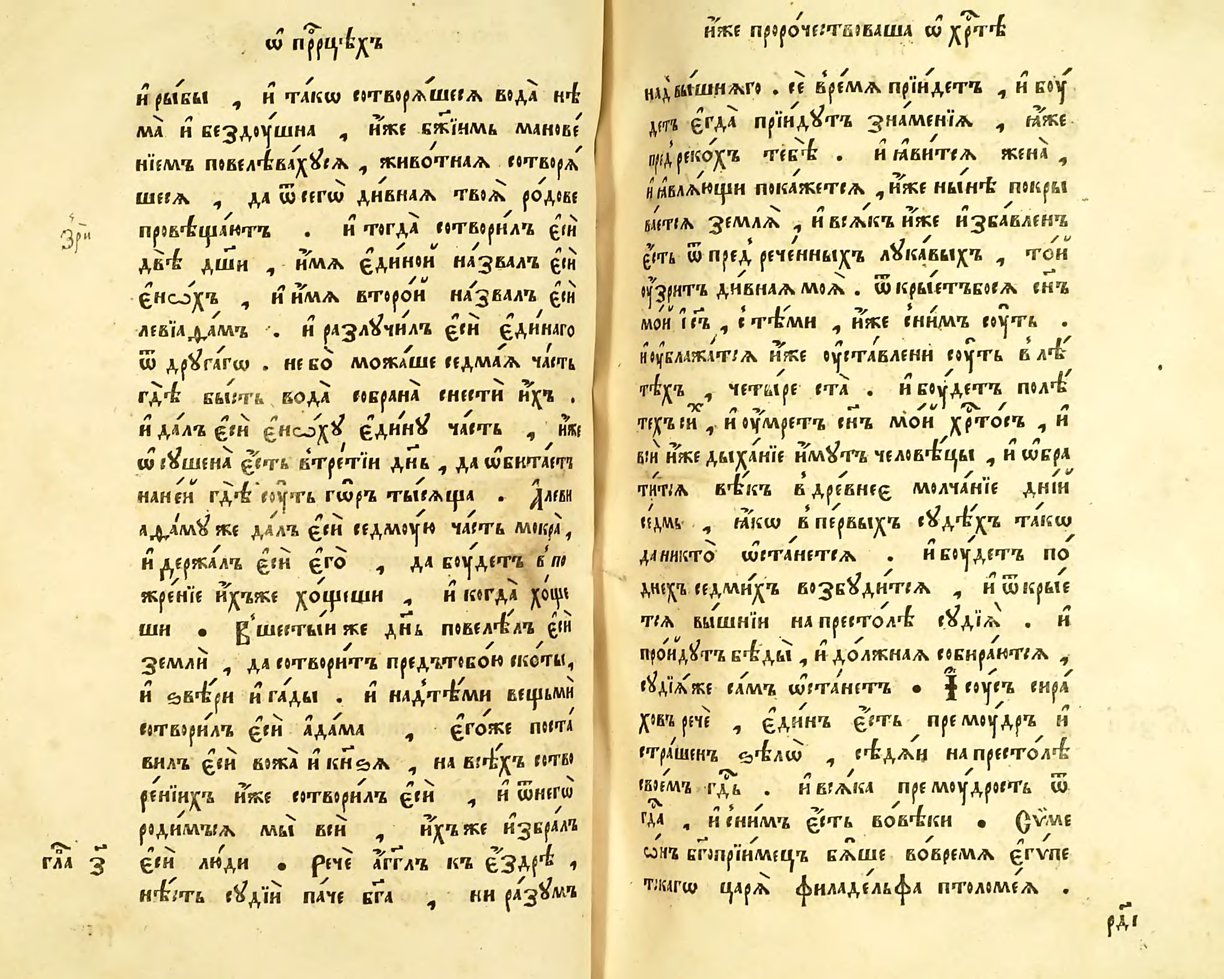 ѡ҆ прⷪ҇рцѣхъ
и҆ ры́бы , и҆ та́кѡ сотворѧ́шесѧ вода̀ нѣ
ма̀ и҆ бездоу́шна , и҆́же бж҃їимь манове́
нїемъ повелѣва́хꙋсѧ , живо́тнаѧ сотворѧ́
шесѧ , да ѿсегѡ̀ ди́внаѧ твоѧ̀ ро́дове
провѣща́ютъ . и҆ тогда̀ сотвори́лъ є҆сѝ
Зри
двѣ̀ дш҃и , и҆́мѧ є҆ди́нои на́звалъ є҆сѝ
є҆нѡ́хъ , и҆ и҆́мѧ второ́и на́звалъ є҆сѝ
левїада́мъ . и҆ разлꙋчи́лъ є҆сѝ є҆ди́наго
ѿ дрꙋга́гѡ . не бо̀ можа́ше седма́ѧ ча́сть
гдѣ̀ бы́сть вода̀ собрана̀ снестѝ и҆́хъ .
и҆ да́лъ є҆сѝ є҆нѡ́хꙋ є҆ди́нꙋ ча́сть , и҆́же
ѡ҆сꙋшена̀ є҆́сть втре́тїи дн҃ь , да ѡ҆бита́етъ
на не́и гдѣ̀ сꙋ́ть го́ръ ты́сѧща . А҆леви
ада́мꙋ же да́лъ є҆сѝ седмоу́ю ча́сть мокра̀,
и҆ держа́лъ є҆сѝ є҆го̀ , да боу́детъ в по
жре́нїе и҆́хъже хо́щеши , и҆ когда̀ хо́ще
ши . В̾шесты́и же дн҃ь повелѣ́лъ є҆сѝ
землѝ , да сотвори́тъ предътобо́ю ско́ты,
и҆ ѕвѣ́ри и҆ га́ды . и҆ над̾тѣ́ми вещьмѝ
сотвори́лъ є҆сѝ а҆да́ма , є҆го́же поста́
вилъ є҆сѝ вожа̀ и҆ кн҃ѕѧ , на всѣ́хъ сотво
ре́нїихъ и҆́же сотвори́лъ є҆сѝ , и҆ ѿнего̀
роди́мъсѧ мы̀ всѝ , и҆́хъ же и҆збра́лъ
гла̑ з҃
є҆сѝ лю́ди . Речѐ а҆́гг҃лъ къ є҆́здрѣ ,
нѣ́сть сꙋдїѝ па́че бг҃а , ни ра́зꙋмъ
и҆́же проро́чествоваша ѡ҆ хрⷭ҇тѣ̀
над̾вы́шнѧго . сѐ вре́мѧ прїи́детъ , и҆ боу́
детъ є҆гда̀ прїи́дꙋтъ зна́менїѧ , ꙗ҆́же
пред̾реко́хъ тебѣ̀ . и҆ ꙗ҆ви́тсѧ жена̀ ,
и҆ ꙗ҆влѧ́ющи пока́жетсѧ , и҆́же ны́нѣ покры
ва́етсѧ землѧ̀ , и҆ всѧ́къ и҆́же и҆зба́вленъ
є҆́сть ѿ пред̾рече́нныхъ лꙋка́выхъ , то́и
оу҆́зритъ ди́внаѧ моѧ̀ . ѿкры́етъбосѧ сн҃ъ
мо́и і҆с҃ъ , с тѣ́ми , и҆́же сни́мъ соу́ть .
и҆ оу҆блажа́тсѧ и҆́же оу҆ста́влени соу́ть в лѣ́
тѣхъ , четы́ре ста̀ . и҆ боу́детъ по лѣ́
техъ си́х , и҆ оу҆́мретъ сн҃ъ мо́и хрⷭ҇то́съ , и҆
всѝ и҆́же дыха́нїе и҆́мꙋтъ человѣ́цы , и҆ ѡ҆бра
ти́тсѧ вѣ́къ в̾дре́внее молча́нїе дні́й
се́дмь , ꙗ҆́кѡ в̾пе́рвыхъ сꙋдѣ́хъ та́кѡ
да никто̀ ѡ҆ста́нетсѧ . и҆ боу́детъ по́
днехъ седми́хъ возбꙋ́дитсѧ , и҆ ѿкры́е
тсѧ вы́шнїи на престо́лѣ сꙋдїѧ̀ . и҆
про́идꙋтъ бѣды̀ , и҆ до́лжнаѧ собира́ютсѧ ,
сꙋдїѧ́же са́мъ ѡ҆ста́нетъ . І҆соу́съ сира́
ховъ речѐ , є҆ди́нъ є҆́сть премоу́дръ и҆
стра́шенъ ѕѣлѡ̀ , сѣдѧ́и на престо́лѣ
свое́мъ гд҇ь . и҆ всѧ́ка премоу́дрость ѿ
гд҇а , и҆ сни́мъ є҆́сть во́вѣки . Сѷме
ѡ́нъ бг҃опрїи́мецъ бѧ́ше во́времѧ є҆гѵ́пе
тскагѡ царѧ̀ филаде́льфа птоломе́ѧ .
рд҃і